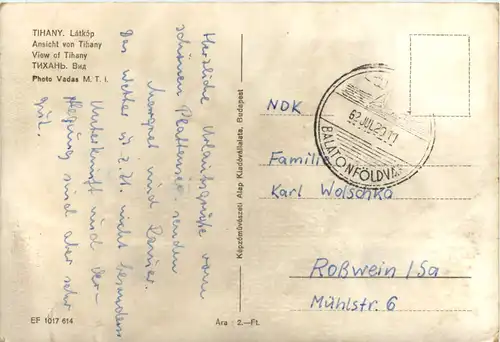 TIHANY. Látkép
Ansicht von Tihany
View of Tihany
ТИХАНЬ. Вид
Photo Vadas M. T. I.
Herzliche Urlaubsgrüße vom
schönen Plattensee senden
Margret und Rainer.
Das Wetter ist z. Zt. nicht besonders
Unterkunft und Ver-
pflegung sind aber sehr
gut.
EF 1017 614
Képzőművészeti Alap Kiadóvállalata, Budapest
Ára : 2.–Ft.
62 JUL 20 11
BALATONFÖLDVÁR
NDK
Familie
Karl Wolschka
Roßwein /Sa
Mühlstr. 6